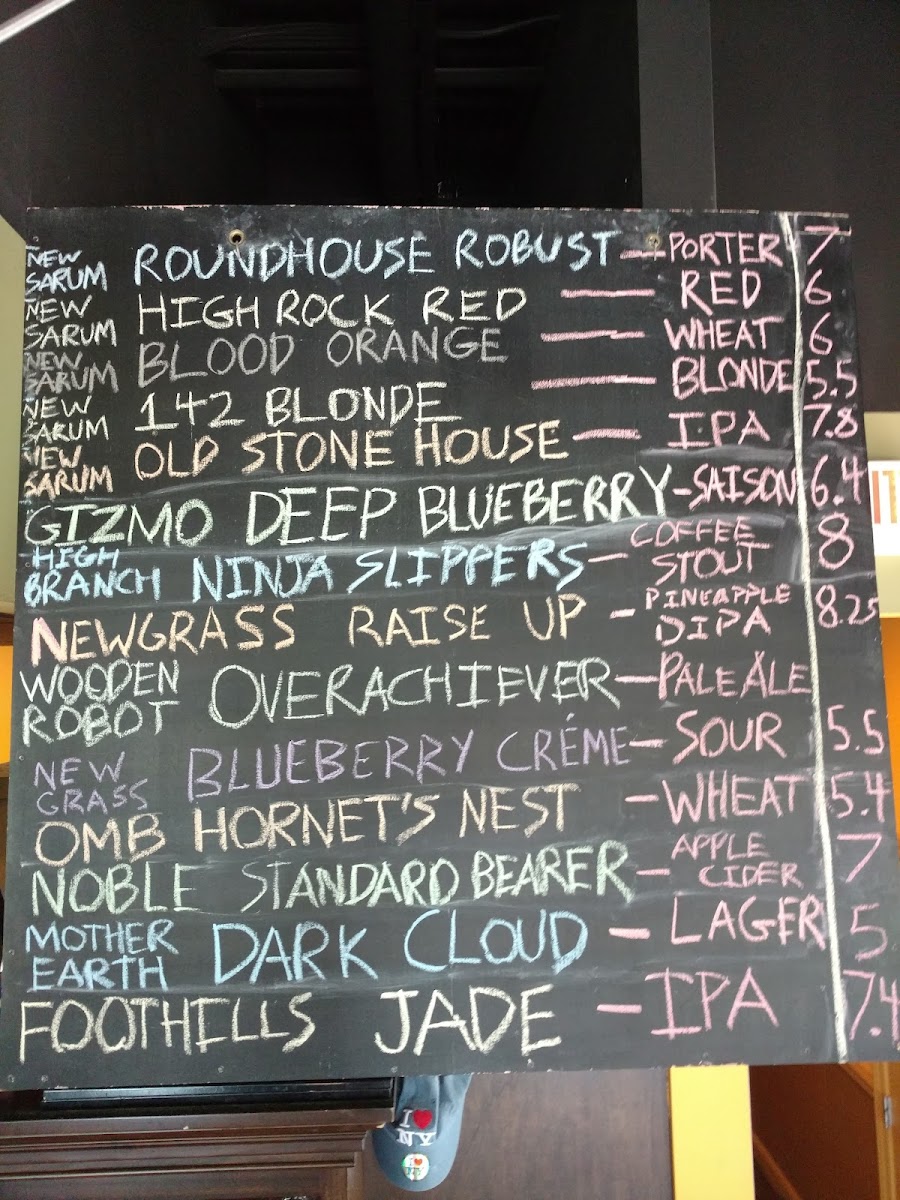 NEW SARUM ROUNDHOUSE ROBUST — PORTER 7
NEW SARUM HIGH ROCK RED — RED 6
NEW SARUM BLOOD ORANGE — WHEAT 6
NEW SARUM 142 BLONDE — BLONDE 5.5
NEW SARUM OLD STONE HOUSE — IPA 7.8
GIZMO DEEP BLUEBERRY - SAISON 6.4
HIGH BRANCH NINJA SLIPPERS - COFFEE STOUT 8
NEWGRASS RAISE UP - PINEAPPLE DIPA 8.25
WOODEN ROBOT OVERACHIEVER - PALE ALE
NEW GRASS BLUEBERRY CRÉME - SOUR 5.5
OMB HORNET'S NEST - WHEAT 5.4
NOBLE STANDARD BEARER - APPLE CIDER 7
MOTHER EARTH DARK CLOUD - LAGER 5
FOOTHILLS JADE - IPA 7.4
I ♥
NY